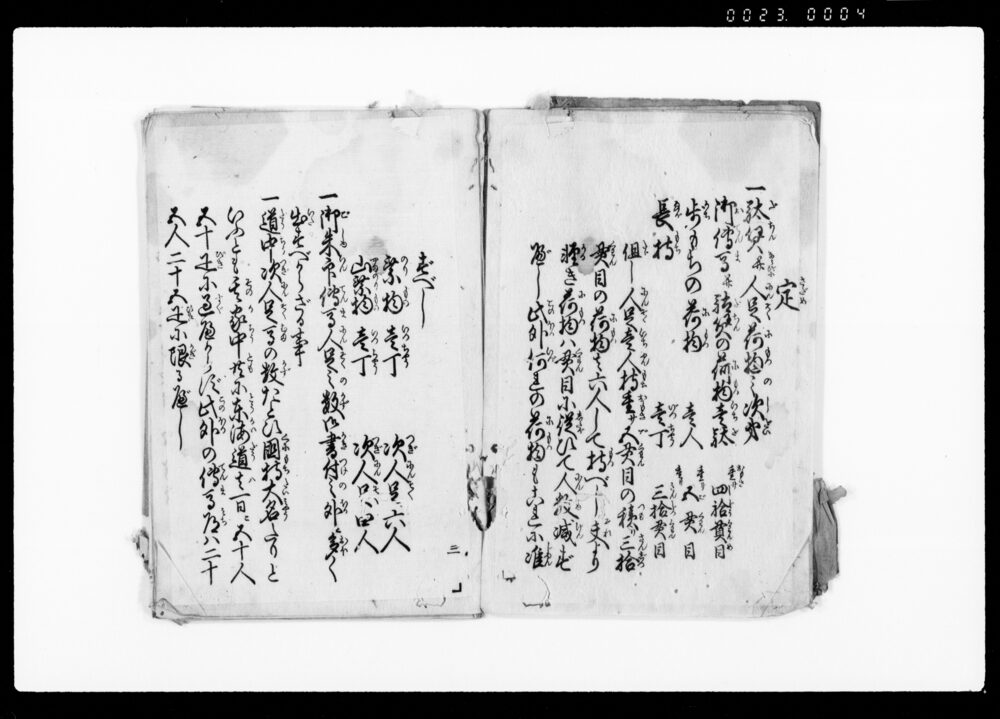 0023. 0004
定
一駄賃并人足荷物之次第
御傳馬并駄賃の荷物壱駄 重サ四拾貫目
歩もちの荷物 壱人 重サ五貫目
長持 壱丁 三拾貫目
但し人足壱人持重サ五貫目の積り三拾
貫目の荷物は六人して持べし夫より
軽き荷物ハ貫目に従ひて人数減ず
べし此外何れの荷物もこれに准
ずべし
乗物 壱丁 次人足六人
山乗物 壱丁 次人足四人
一御朱印傳馬人足之数御書付之外多く
出すべからざる事
一道中次人足馬の数たとひ國持大名たりと
いふとも其家中共に東海道は一日に五十人
五十疋に過べからず此外の傳馬道ハ二十
五人二十五疋に限るべし
三